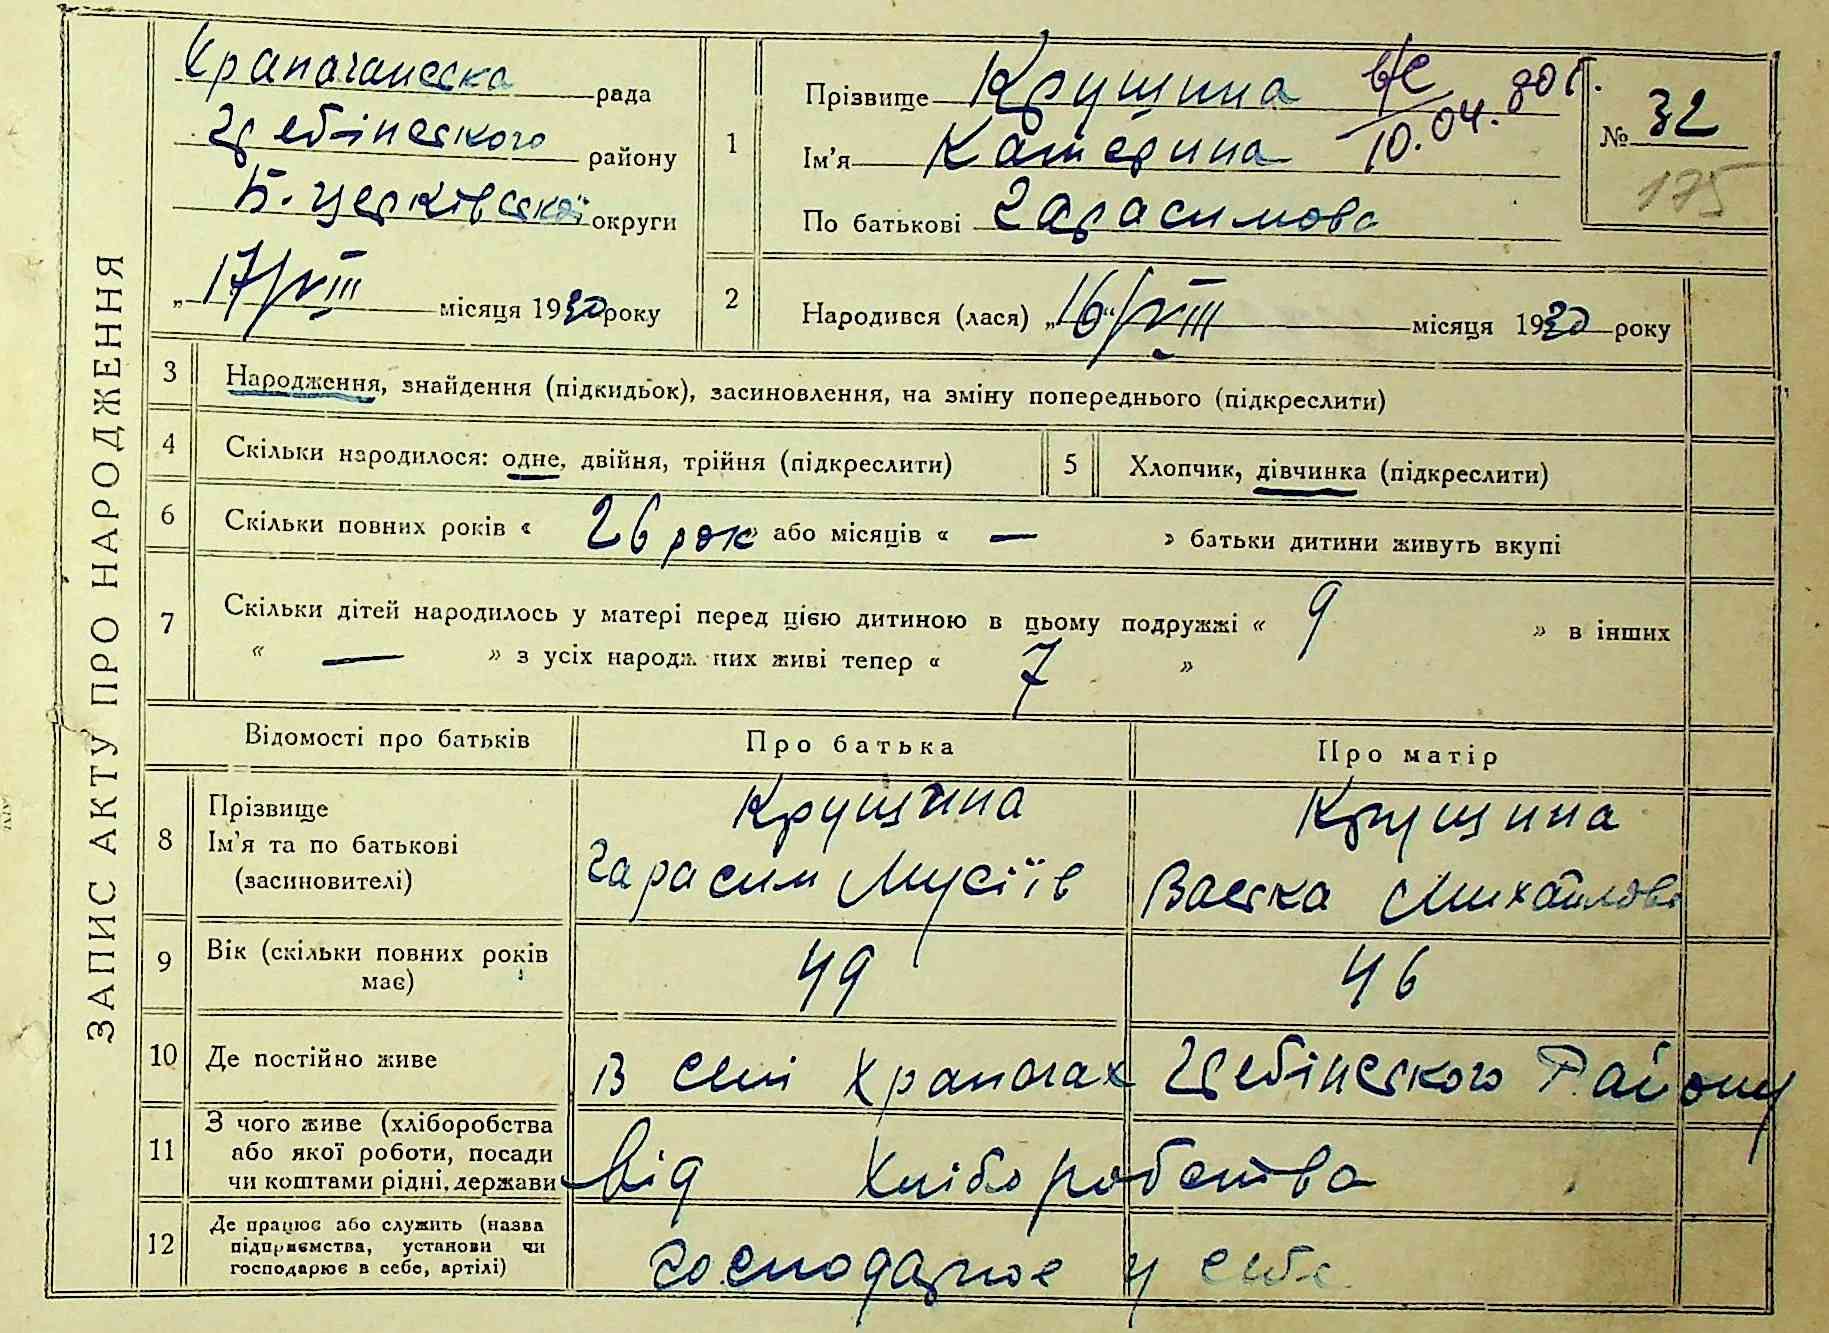 ЗАПИС АКТУ ПРО НАРОДЖЕННЯ
Храпачанська рада
Цебінського району
Б. Церківської округи
„ 17/VIII місяця 1930 року
1
Прізвище Крущина
Ім'я Катерина
По батькові Гарасимова
в/с 10.04. 80 г.
№ 32
175
2
Народився (лася) „16“/VIII місяця 1930 року
3 Народження, знайдення (підкидьок), засиновлення, на зміну попереднього (підкреслити)
4 Скільки народилося: одне, двійня, трійня (підкреслити)
5 Хлопчик, дівчинка (підкреслити)
6 Скільки повних років « 26 рок » або місяців « — » батьки дитини живуть вкупі
7 Скільки дітей народилось у матері перед цією дитиною в цьому подружжі « 9 » в інших
« — » з усіх народж них живі тепер « 7 »
Відомості про батьків Про батька Про матір
8
Прізвище
Ім'я та по батькові
(засиновителі)
Крущина
Гарасим Мусіїв
Крущина
Васка Михайлова
9
Вік (скільки повних років
має)
49
46
10 Де постійно живе
в селі Храпачах Цебінського Району
11
З чого живе (хліборобства
або якої роботи, посади
чи коштами рідні, держави
Від хліборобства
12
Де працює або служить (назва
підприємства, установи чи
господарює в себе, артілі)
господарює у себе